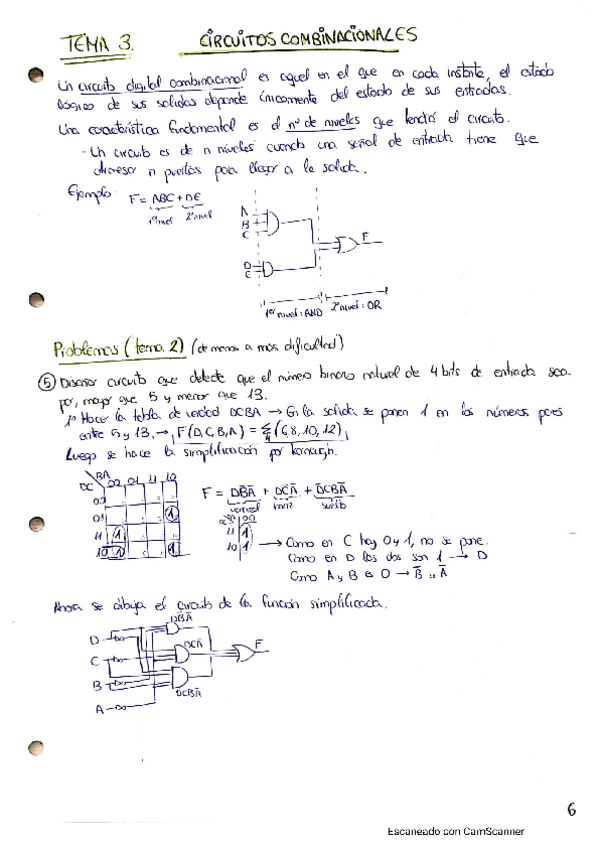 TEMA 3. CIRCUITOS COMBINACIONALES
Un circuito digital combinacional es aquel en el que en cada instante, el estado
lógico de sus salidas depende únicamente del estado de sus entradas.
Una característica fundamental es el nº de niveles que tendrá el circuito.
- Un circuito es de n niveles cuando una señal de entrada tiene que
atravesar n puertas para llegar a la salida.
Ejemplo F = ABC + DE
1er nivel 2º nivel
A
B
C
D
E
F
1er nivel: AND 2º nivel: OR
Problemas (tema 2) (de menos a más dificultad)
5 Diseñar circuito que detecte que el número binario natural de 4 bits de entrada sea
par, mayor que 5 y menor que 13.
1º Hacer la tabla de verdad DCBA → En la salida se ponen 1 en los números pares
entre 5 y 13. → F(D,C,B,A) = Σ4(6,8,10,12)
Luego se hace la simplificación por karnaugh.
DC BA 00 01 11 10
00
01 1
11 1
10 1 1
F = DB̄Ā + DC̄Ā + D̄CBĀ
vertical
DC BA 00
11 1
10 1
→ Como en C hay 0 y 1, no se pone.
Como en D los dos son 1 → D
Como A y B es 0 → B̄ y Ā
Ahora se dibuja el circuito de la función simplificada.
DB̄Ā
D
DC̄Ā
F
C
B
D̄CBĀ
A
6
Escaneado con CamScanner